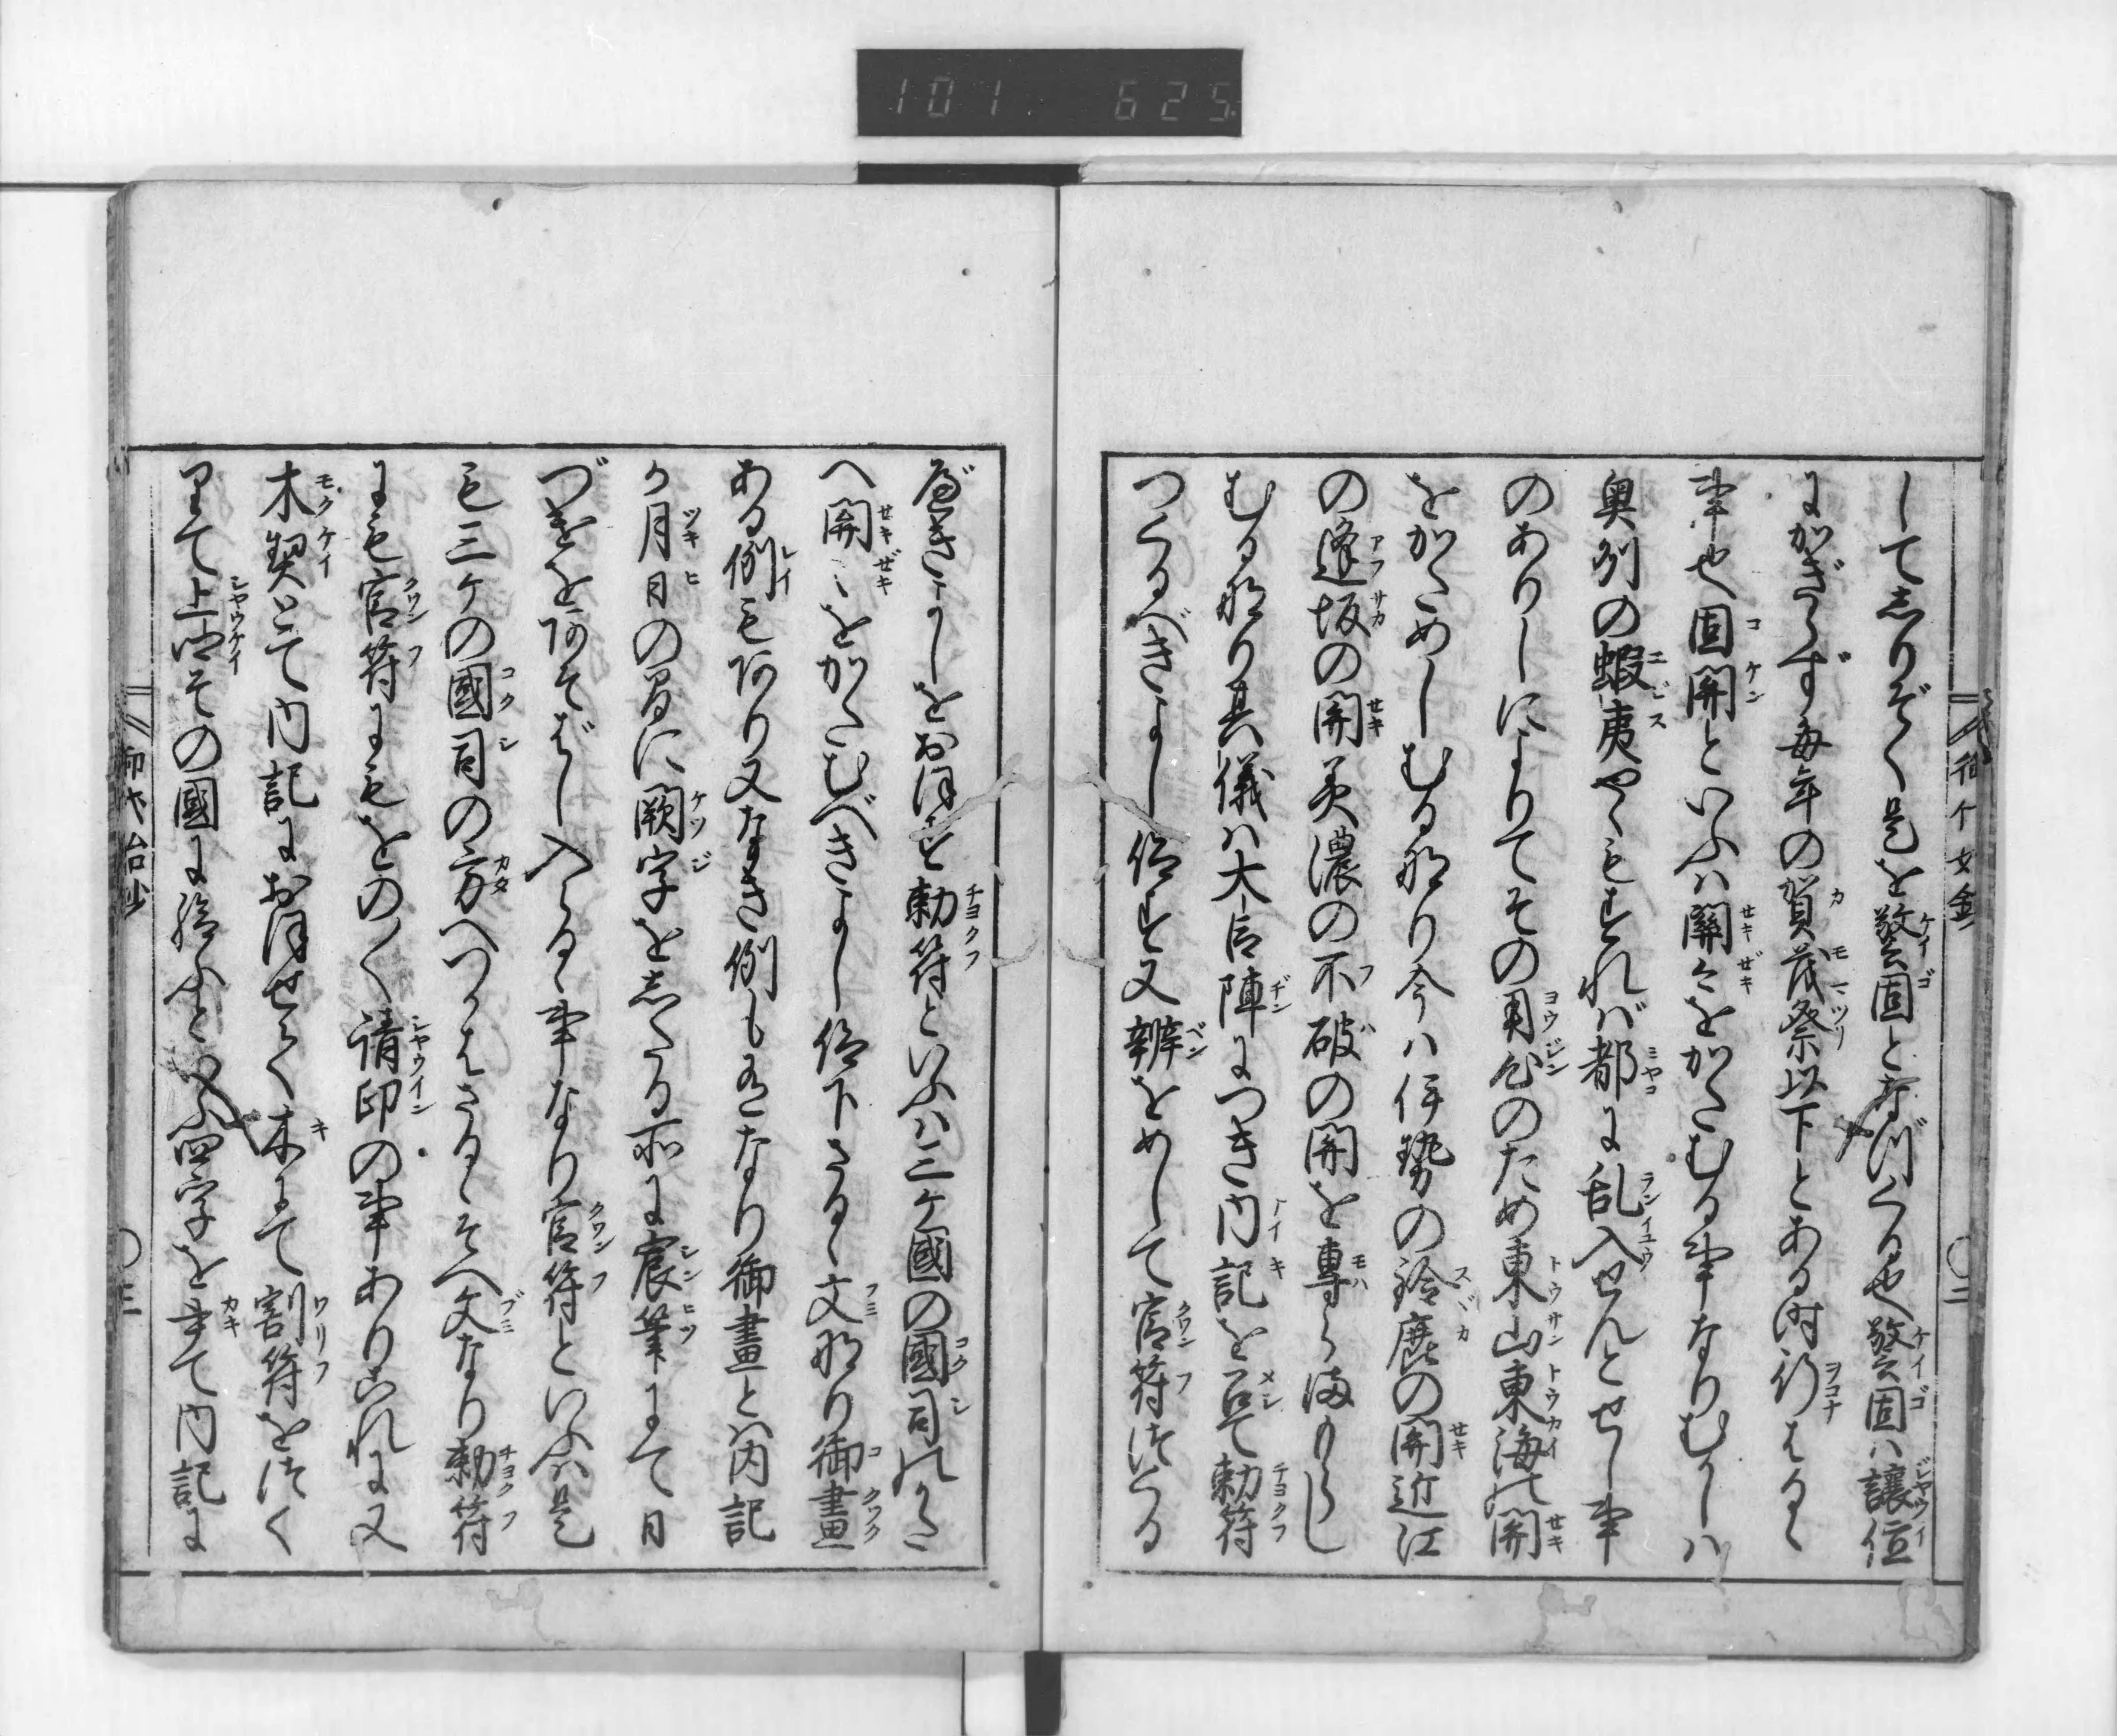 101 625
してしりぞく是を警固と名づくる也警固ハ讓位
にかぎらず毎年の賀茂祭以下とある时行はるゝ
事也固関といふハ關々をかたむる事なりむかしハ
奥列の蝦夷やゝもすれバ都に乱入せんとせし事
のありしによりてその用心のため東山東海の関
をかためしむる也り今ハ伊勢の鈴鹿の関近江
の逢坂の関美濃の不破の関を專らまもらし
むる也り其儀ハ大臣陣につき内記を召て勅符
つくるべきよし仰す又辨をめして官符つくる
べきよしをおほす勅符といふハ三ケ國の國司のかた
へ関〻をかたむべきよし仰下さるゝ文也り御畫
ある例もあり又なき例も有なり御畫とハ内記
か月日の間に闕字をしたる所に宸筆にて日
づけをあそばし入らるゝ事なり官符といふハ是
も三ケの國司の方へつかはさるゝそへ文なり勅符
にも官符にもをのく请印の事ありこれに又
木契とて内記におほせてく木にて割符をつく
りて上卿その國に給ふといふ四字を書て内記に
三
三